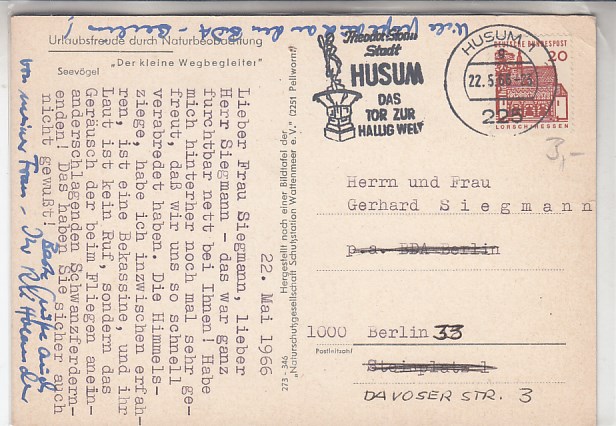 Viele Grüße auch an den BDA-Berlin!
Urlaubsfreude durch Naturbeobachtung
"Der kleine Wegbegleiter"
Seevögel
22. Mai 1966
Lieber Frau Siegmann, lieber
Herr Siegmann - das war ganz
furchtbar nett bei Ihnen! Habe
mich hinterher noch mal sehr ge-
freut, daß wir uns so schnell
verabredet haben. Die Himmels-
ziege, habe ich inzwischen erfah-
ren, ist eine Bekassine, und ihr
Laut ist kein Ruf, sondern das
Geräusch der beim Fliegen anein-
anderschlagenden Schwanzfedern-
enden! Das haben Sie sicher auch
nicht gewußt! Beste Grüße auch
von meiner Frau - Ihr
273 - 346
Hergestellt nach einer Bildtafel der
"Naturschutzgesellschaft Schutzstation Wattenmeer e.V." (2251 Pellworm)
Theodor-Storm
Stadt
HUSUM
DAS
TOR ZUR
HALLIG WELT
HUSUM
a
22.5.66-23
225
DEUTSCHE BUNDESPOST
20
LORSCH/HESSEN
3,-
Herrn und Frau
Gerhard Siegmann
p.a. BDA Berlin
1000 Berlin 33
Postleitzahl
Steinplatz 1
DAVOSER STR. 3